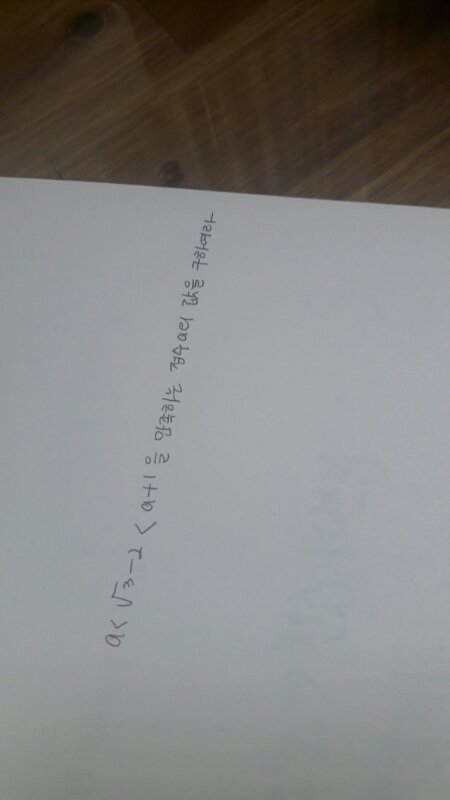 a < √3 - 2 < a+1 을 만족하는 정수 a의 값을 구하여라